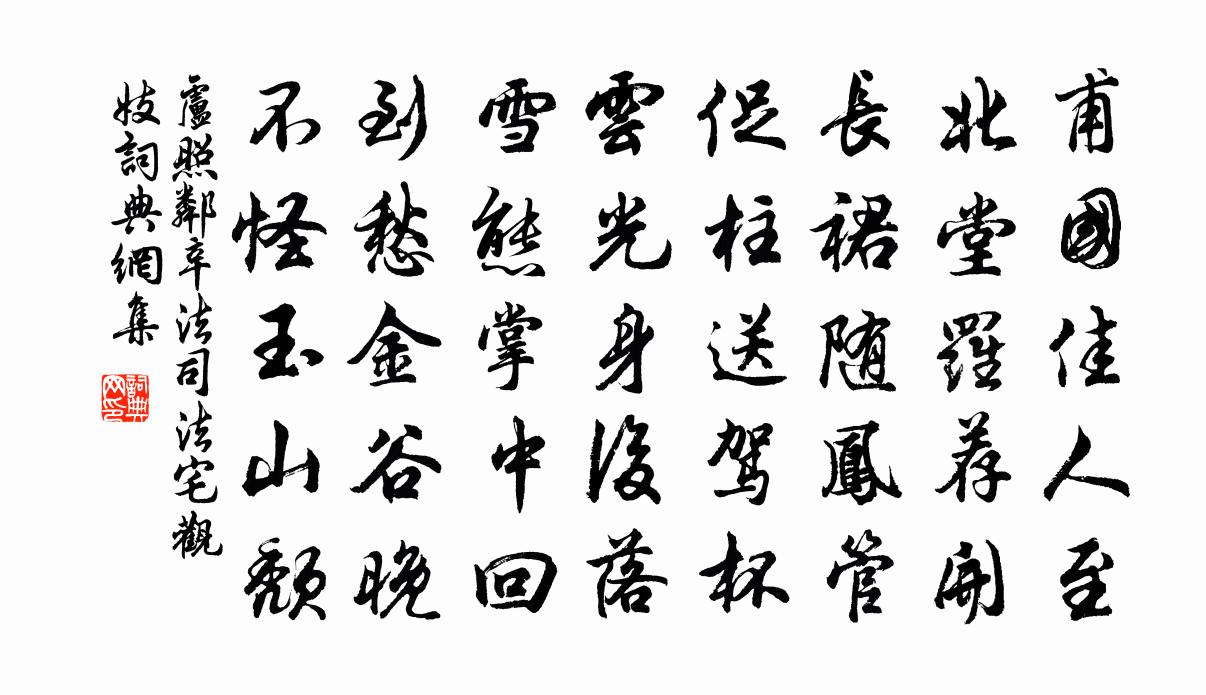 甫國佳人至
北堂羅荐開
長裙随鳳管
促柱送駕杯
雲光身後落
雪態掌中回
到愁金谷晚
不怪玉山頹
盧照鄰辛法司法宅觀
妓詞典網集
詞典
网印